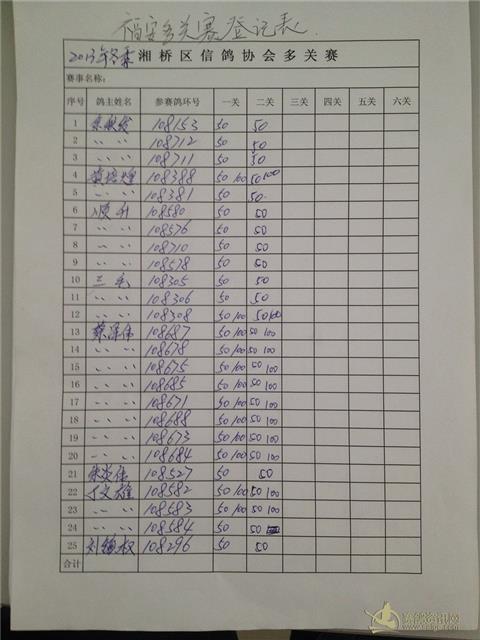 福安多关赛登记表
2013年冬季 湘桥区信鸽协会多关赛
赛事名称：
序号 鸽主姓名 参赛鸽环号 一关 二关 三关 四关 五关 六关
1 108153 50 50
2 〃 〃 108712 50 50
3 〃 〃 108711 50 50
4 黄培煌 108388 50 100 50 100
5 〃 〃 108381 50 50
6 顺升 108580 50 50
7 〃 〃 108576 50 50
8 〃 〃 108710 50 50
9 〃 〃 108578 50 50
10 三毛 108305 50 50
11 〃 〃 108306 50 50
12 〃 〃 108308 50 100 50 100
13 蔡泽伟 108687 50 100 50 100
14 〃 〃 108678 50 100 50 100
15 〃 〃 108675 50 100 50 100
16 〃 〃 108685 50 100 50 100
17 〃 〃 108671 50 100 50 100
18 〃 〃 108688 50 100 50 100
19 〃 〃 108673 50 100 50 100
20 〃 〃 108684 50 100 50 100
21 108527 50 50
22 丁文雄 108582 50 100 50 100
23 〃 〃 108583 50 100 50 100
24 〃 〃 108584 50 50
25 刘 权 108296 50 50
合计